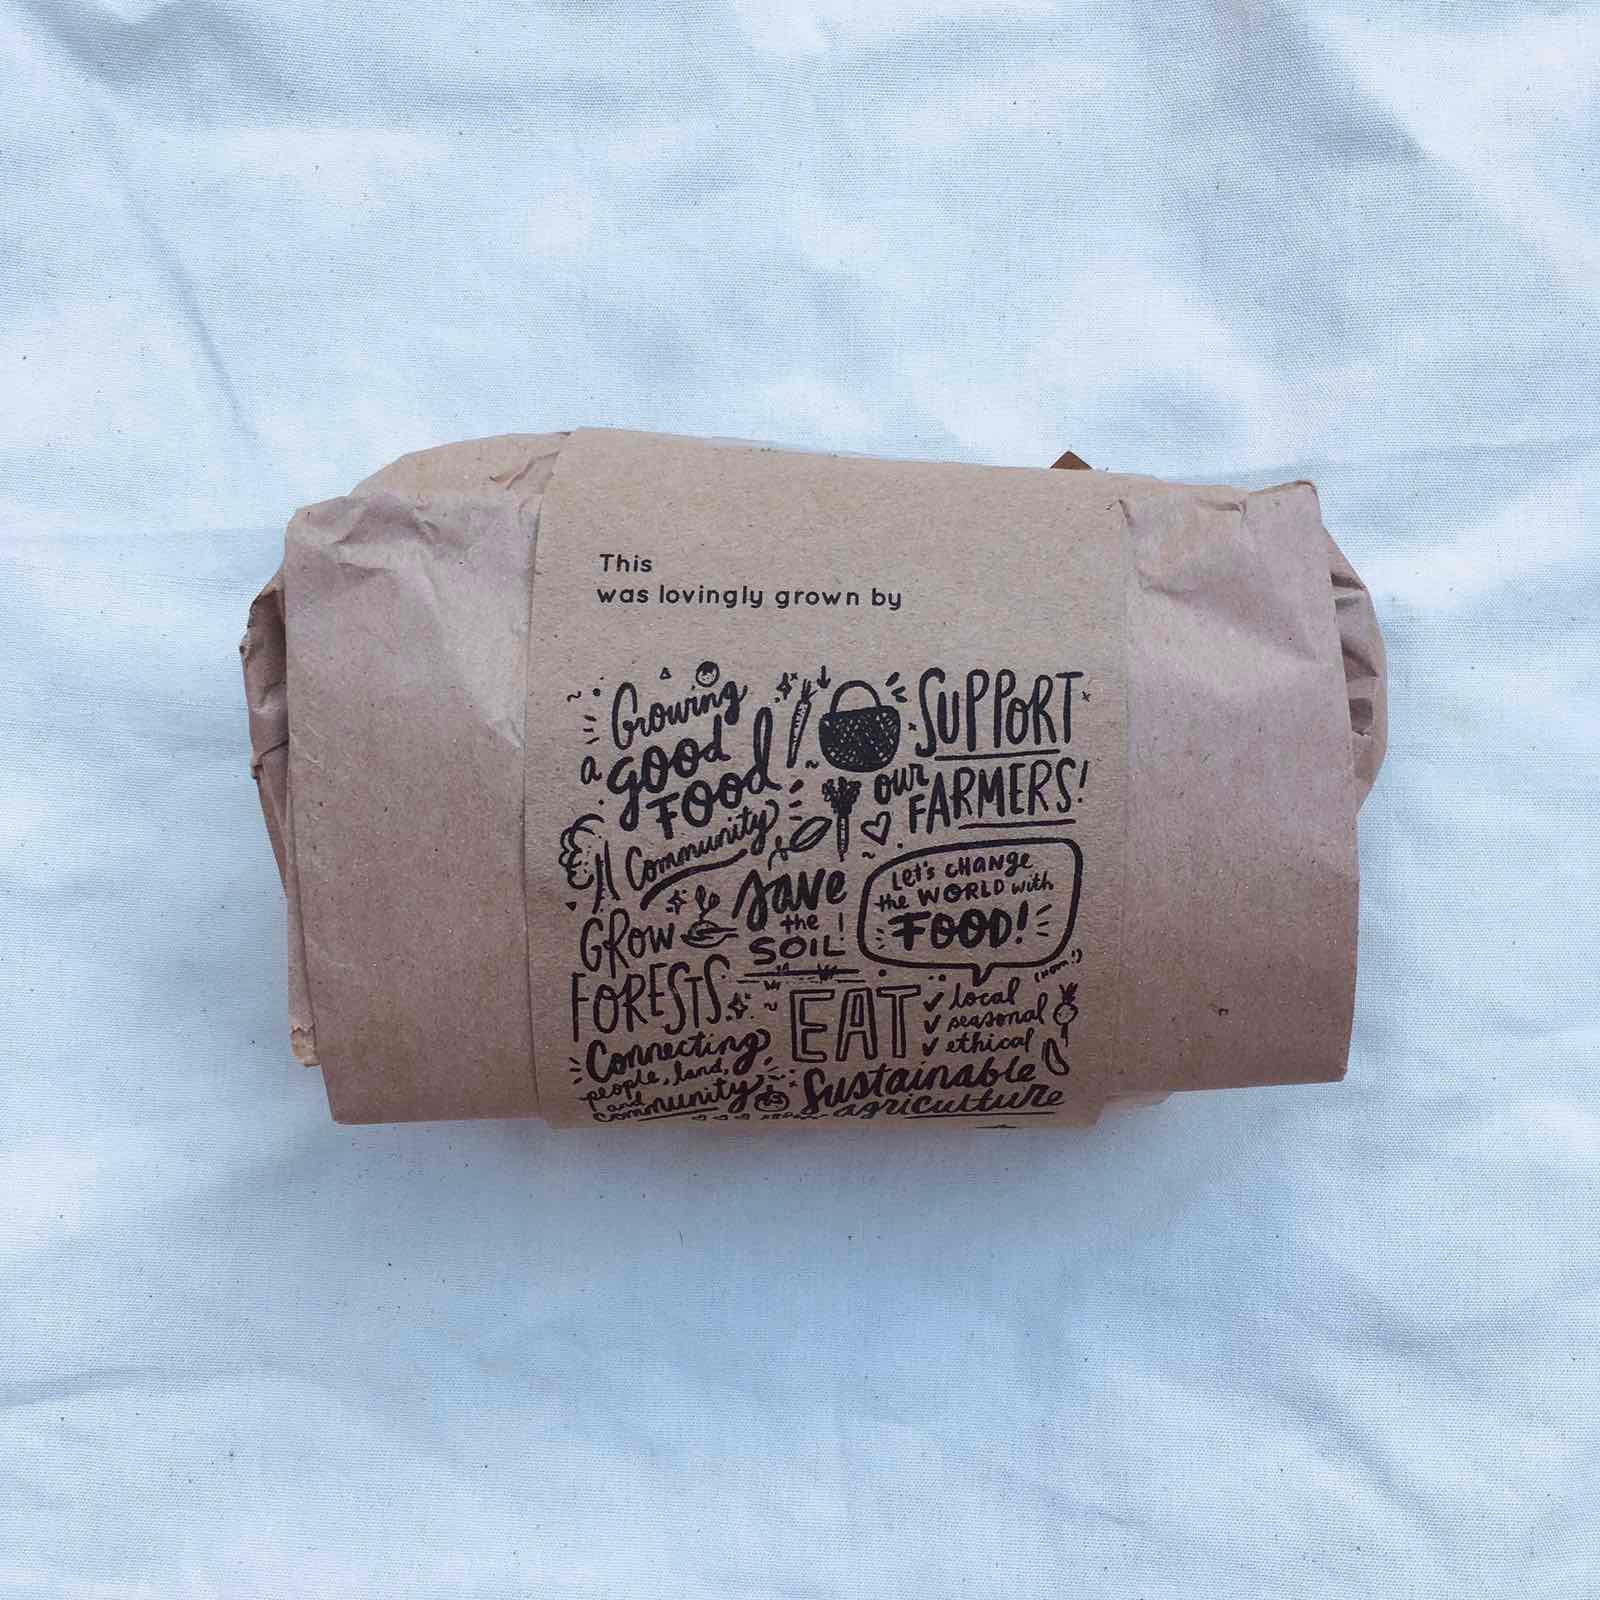 This
was lovingly grown by
Growing
a good
Food
Community
SUPPORT
our
FARMERS!
Save
the
SOIL!
Let's CHANGE
the WORLD with
FOOD!
GROW
FORESTS
EAT
local
seasonal
ethical
(nom!)
Connecting
people, land,
and
community
Sustainable
agriculture